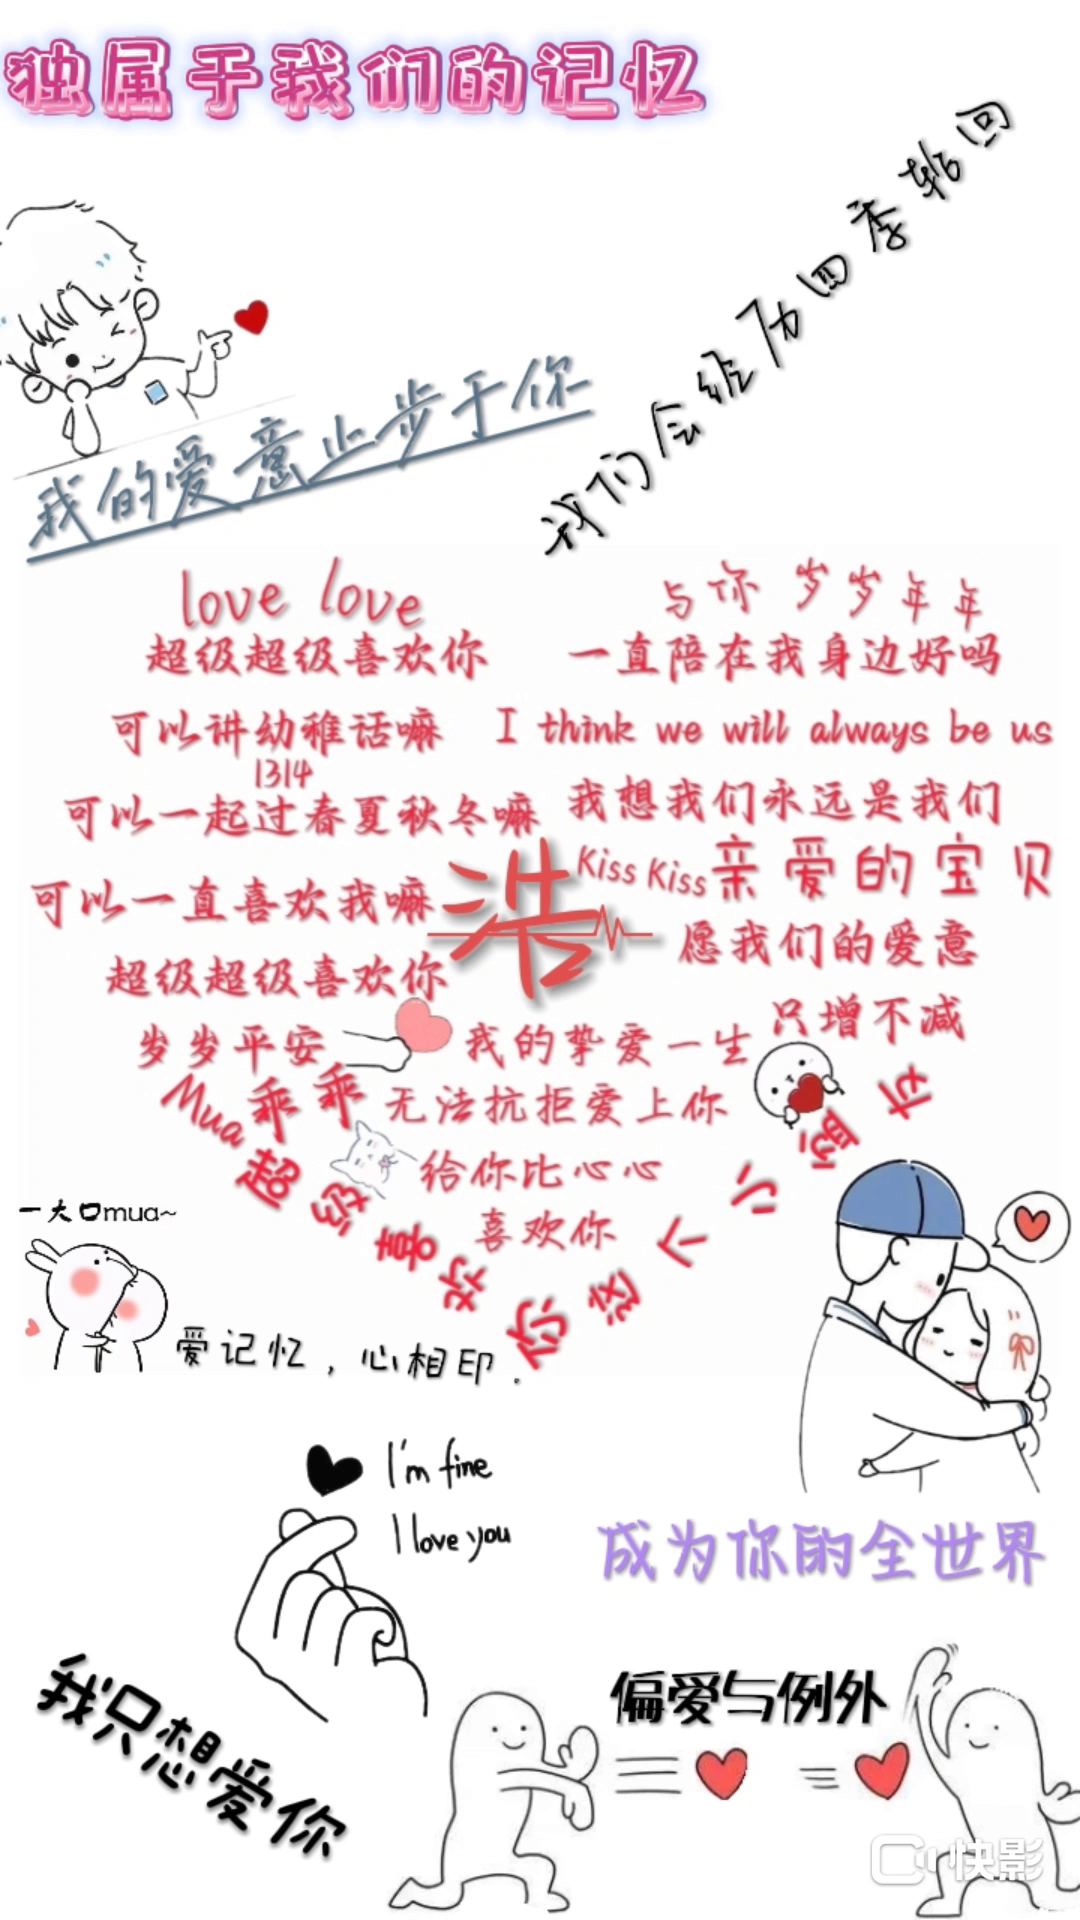 独属于我们的记忆
我们会经历四季轮回
我的爱意止步于你
love love
超级超级喜欢你
与你 岁岁年年
一直陪在我身边好吗
可以讲幼稚话嘛
I think we will always be us
1314
可以一起过春夏秋冬嘛
我想我们永远是我们
Kiss Kiss
亲爱的宝贝
浩
可以一直喜欢我嘛
愿我们的爱意
超级超级喜欢你
只增不减
岁岁平安
我的挚爱一生
Mua乖乖
无法抗拒爱上你
给你比心心
喜欢你
超级喜欢你这个小
一大口mua~
爱记忆，心相印.
I'm fine
I love you
成为你的全世界
我只想爱你
偏爱与例外
快影